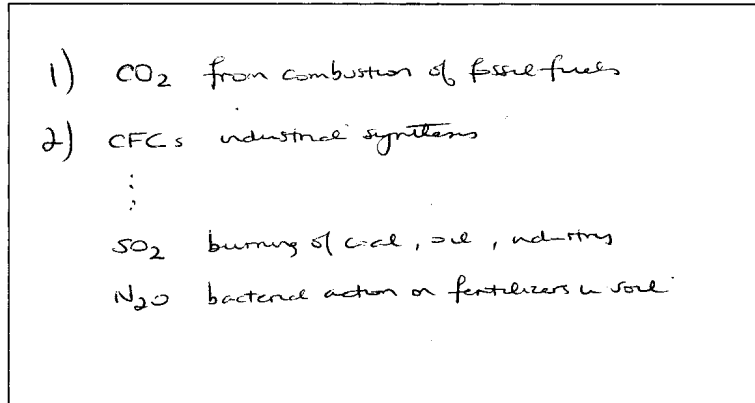 1) CO2 from combustion of fossil fuels
2) CFCs industrial synthesis
⋮
SO2 burning of coal, oil, industry
N2O bacterial action on fertilizers in soil